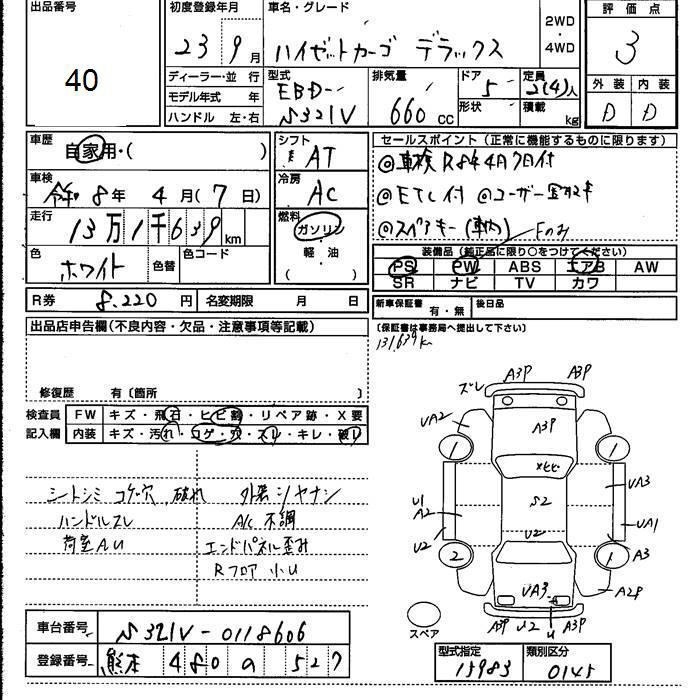 出品番号 初度登録年月 車名・グレード 2WD・4WD 評価点
40 23 9月 ハイゼットカーゴ デラックス 3
ディーラー・並 行 型式 排気量 ドア 定員 外装 内装
モデル年式 年 EBD- 5 2(4)人 D D
ハンドル 左・右 S321V 660cc 形状 積載 kg
車歴 自家用・( ) シフト AT セールスポイント(正常に機能するものに限ります)
◎車検R8年4月7日付
車検 令和8年 4月(7日) 冷房 AC ◎ETC付 ◎ユーザー
走行 13万1千639km 燃料 ガソリン ◎スペアキー(車内) Fのみ
色 ホワイト 色替 色コード 軽・油 ( )
装備品(純正品に限り○をつけてください)
PS PW ABS エアB AW
SR ナビ TV カワ
R券 8.220円 名変期限 月 日 新車保証書 有・無 後日品
出品店申告欄(不良内容・欠品・注意事項等記載) 〔保証書は事務局へ提出して下さい〕
131,639k
修復歴 有〔箇所 〕
検査員 FW キズ・飛石・ヒビ割・リペア跡・X要
記入欄 内装 キズ・汚れ・コゲ・穴・スレ・キレ・破レ
シートシミ コゲ穴,破れ 外装シャナン
ハンドルスレ A/C 不調
荷室AU エンドパネル歪み
Rフロア 小U
ズレ A3P A3P
UA2 A3P
U1 A2 S2 UA3
UA1
U2 2 U2 A3
UA3 A2P
スペア A3P U2 U A3P
車台番号 S321V-0118606
登録番号 熊本 480 の 527
型式指定 類別区分
15983 0145